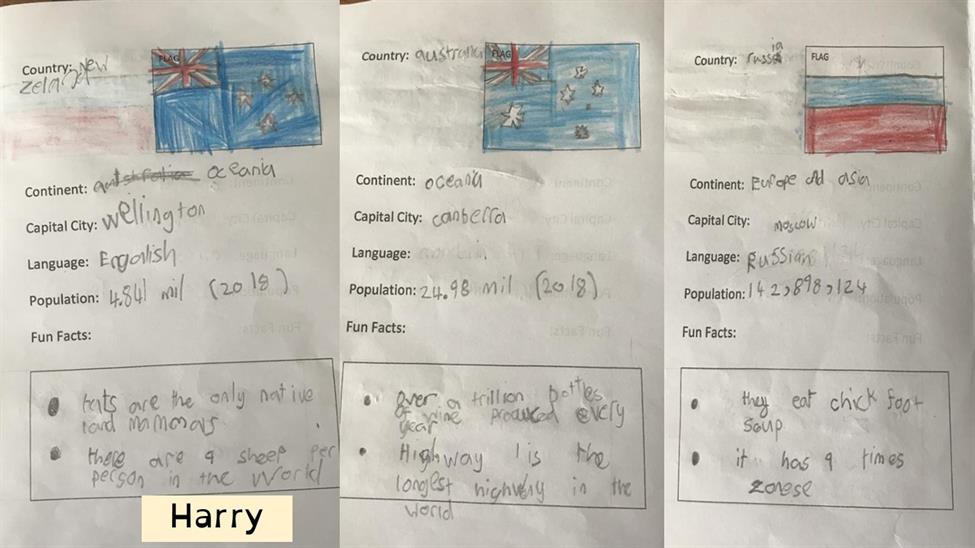 Country: new
zeland
FLAG
Continent: australia oceania
Capital City: wellington
Language: Engalish
Population: 4.841 mil (2018)
Fun Facts:
• bats are the only native
land mammals
• there are 9 sheep per
person in the world
Harry
Country: australia
FLAG
Continent: oceania
Capital City: canberra
Language:
Population: 24.98 mil (2018)
Fun Facts:
• over a trillion bottles
of wine produced every
year
• Highway 1 is the
longest highway in the
world
Country: russia
FLAG
Continent: Europe asia
Capital City: moscow
Language: Russian
Population: 142,898,124
Fun Facts:
• they eat chick foot
soup
• it has 9 times
zonese